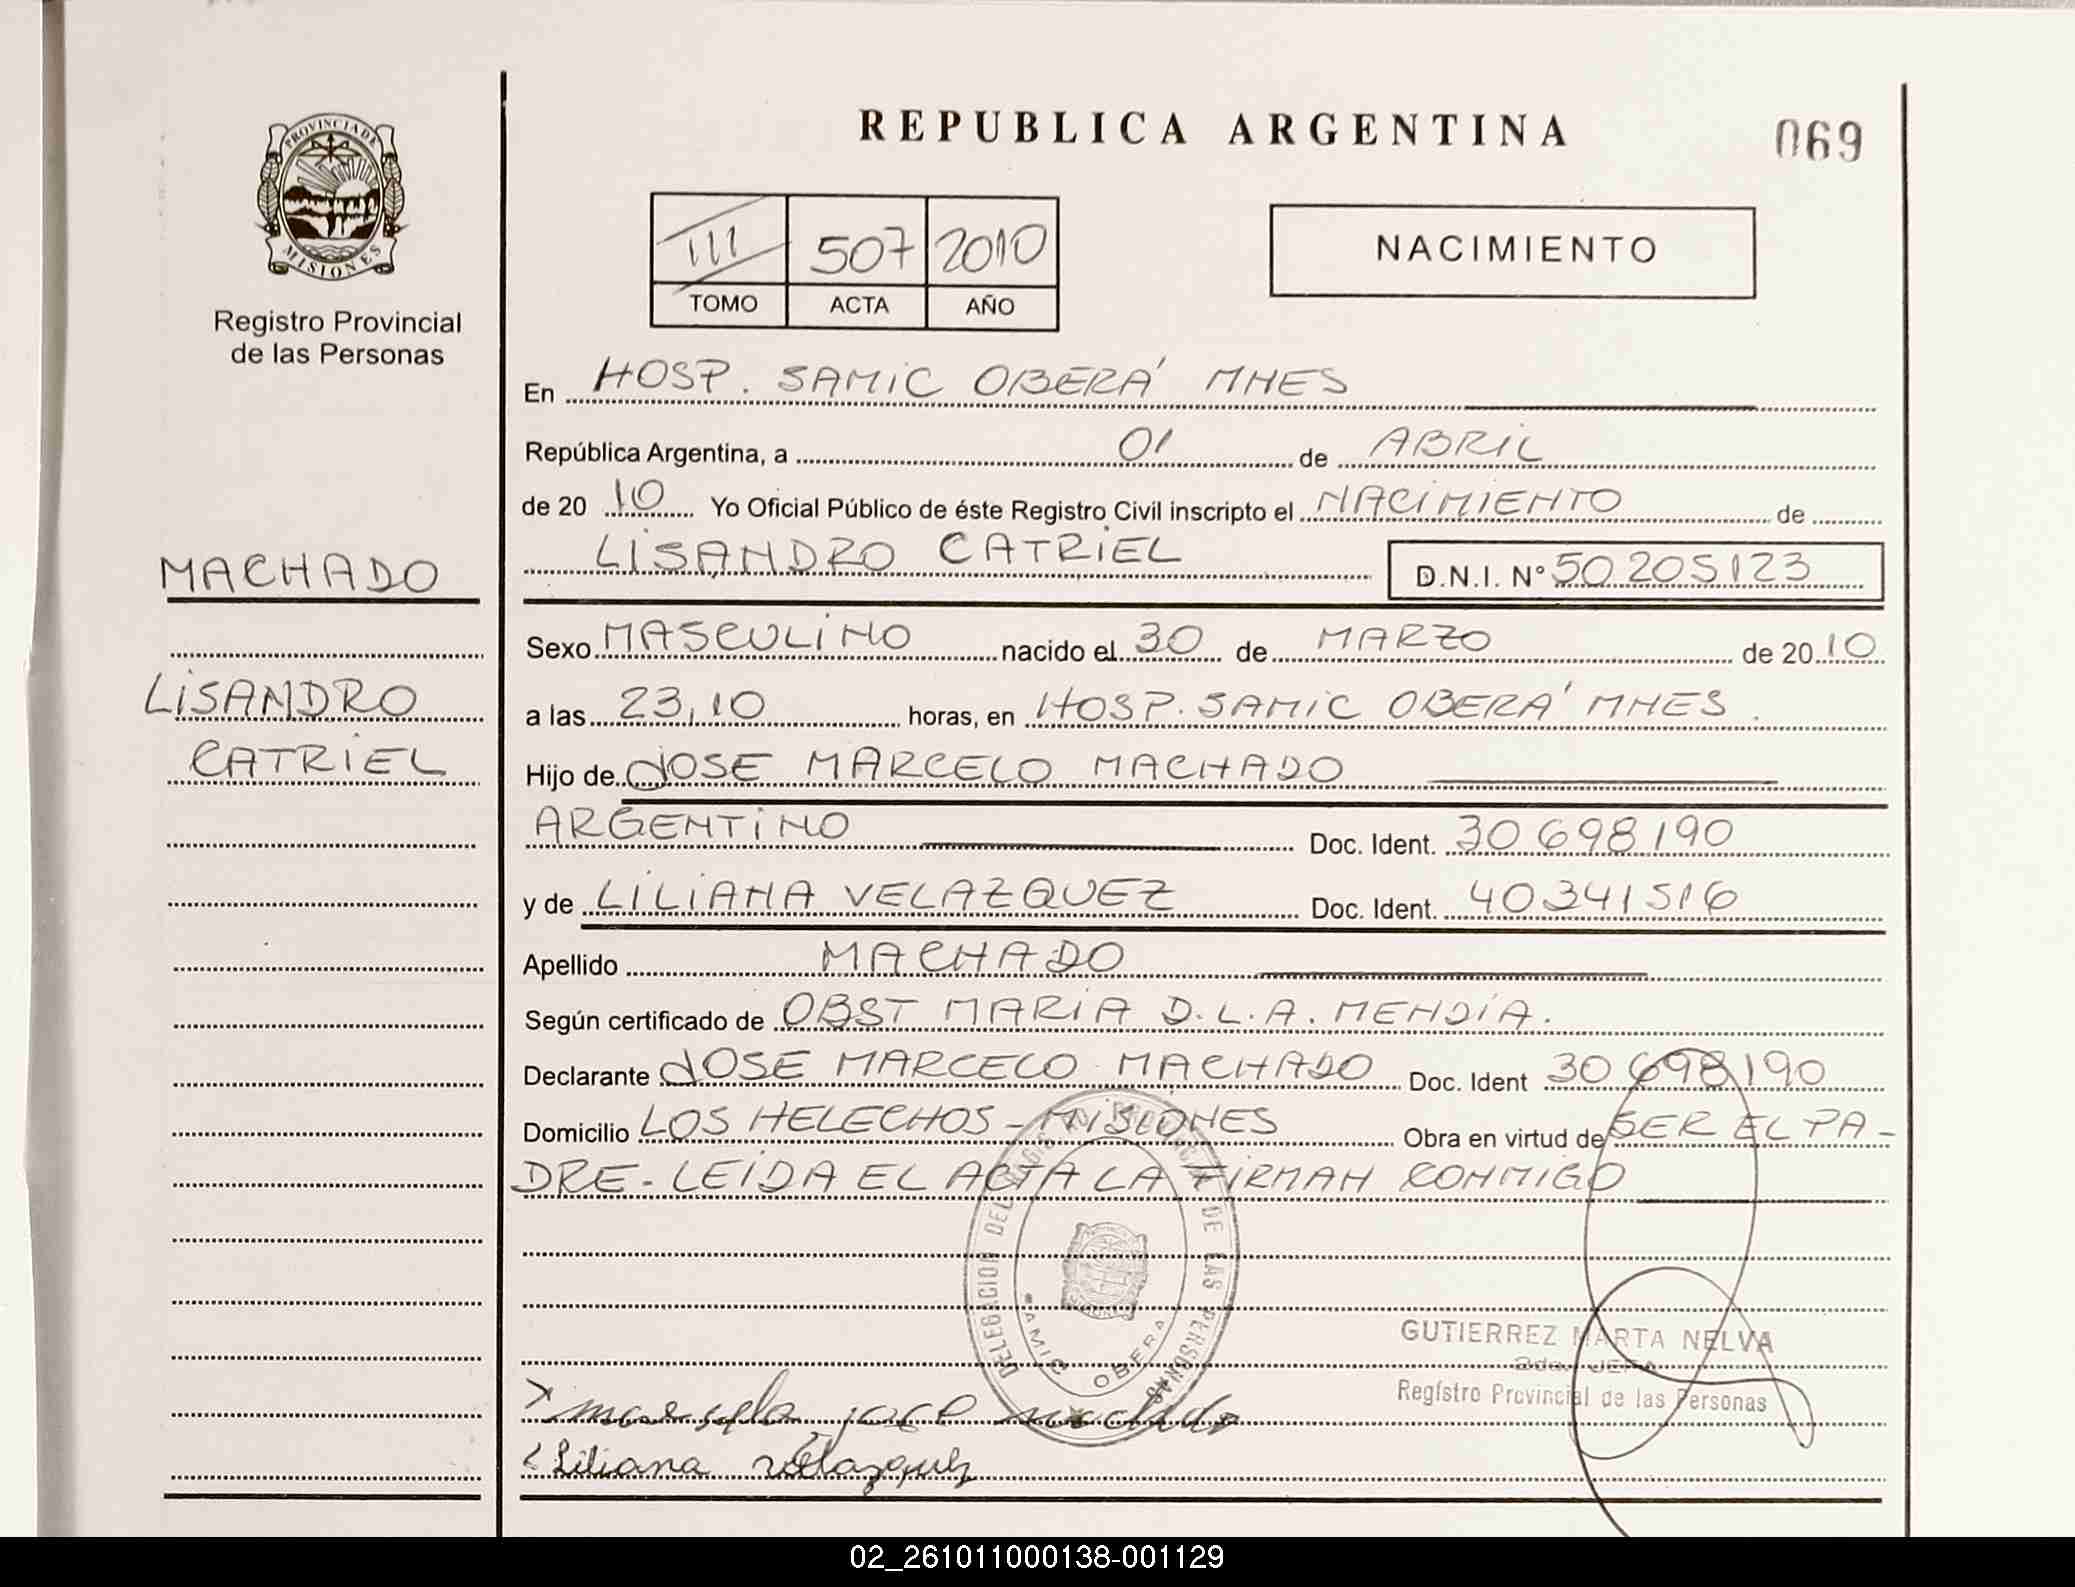 REPUBLICA ARGENTINA
069
PROVINCIA DE
MISIONES
Registro Provincial
de las Personas
III 507 2010
TOMO ACTA AÑO
NACIMIENTO
En HOSP. SAMIC OBERÁ MNES
República Argentina, a 01 de ABRIL
de 20 10 Yo Oficial Público de éste Registro Civil inscripto el NACIMIENTO de
LISANDRO CATRIEL D.N.I. N° 50205123
MACHADO
LISANDRO
CATRIEL
Sexo MASCULINO nacido el 30 de MARZO de 20 10
a las 23,10 horas, en HOSP. SAMIC OBERÁ MNES.
Hijo de JOSE MARCELO MACHADO
ARGENTINO Doc. Ident. 30698190
y de LILIANA VELAZQUEZ Doc. Ident. 40341516
Apellido MACHADO
Según certificado de OBST MARIA D.L.A. MENDÍA.
Declarante JOSE MARCELO MACHADO Doc. Ident 30698190
Domicilio LOS HELECHOS - MISIONES Obra en virtud de SER EL PA-
DRE - LEIDA EL ACTA LA FIRMAN CONMIGO
DELEGACION DEL DE LAS PERSONAS
SAMIC OBERA
GUTIERREZ MARTA NELVA
2da. JEFA
Registro Provincial de las Personas
marcelo jose machado
Liliana Velazquez
02_261011000138-001129